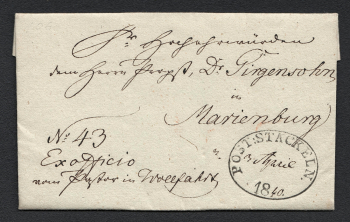 Sr Hochehrwürden
dem Herrn Propst, Dr Girgensohn
in
Marienburg
No 43
Ex Officio
vom Pastor in Wolfahrt
POST: STACKELN.
3 März
1840